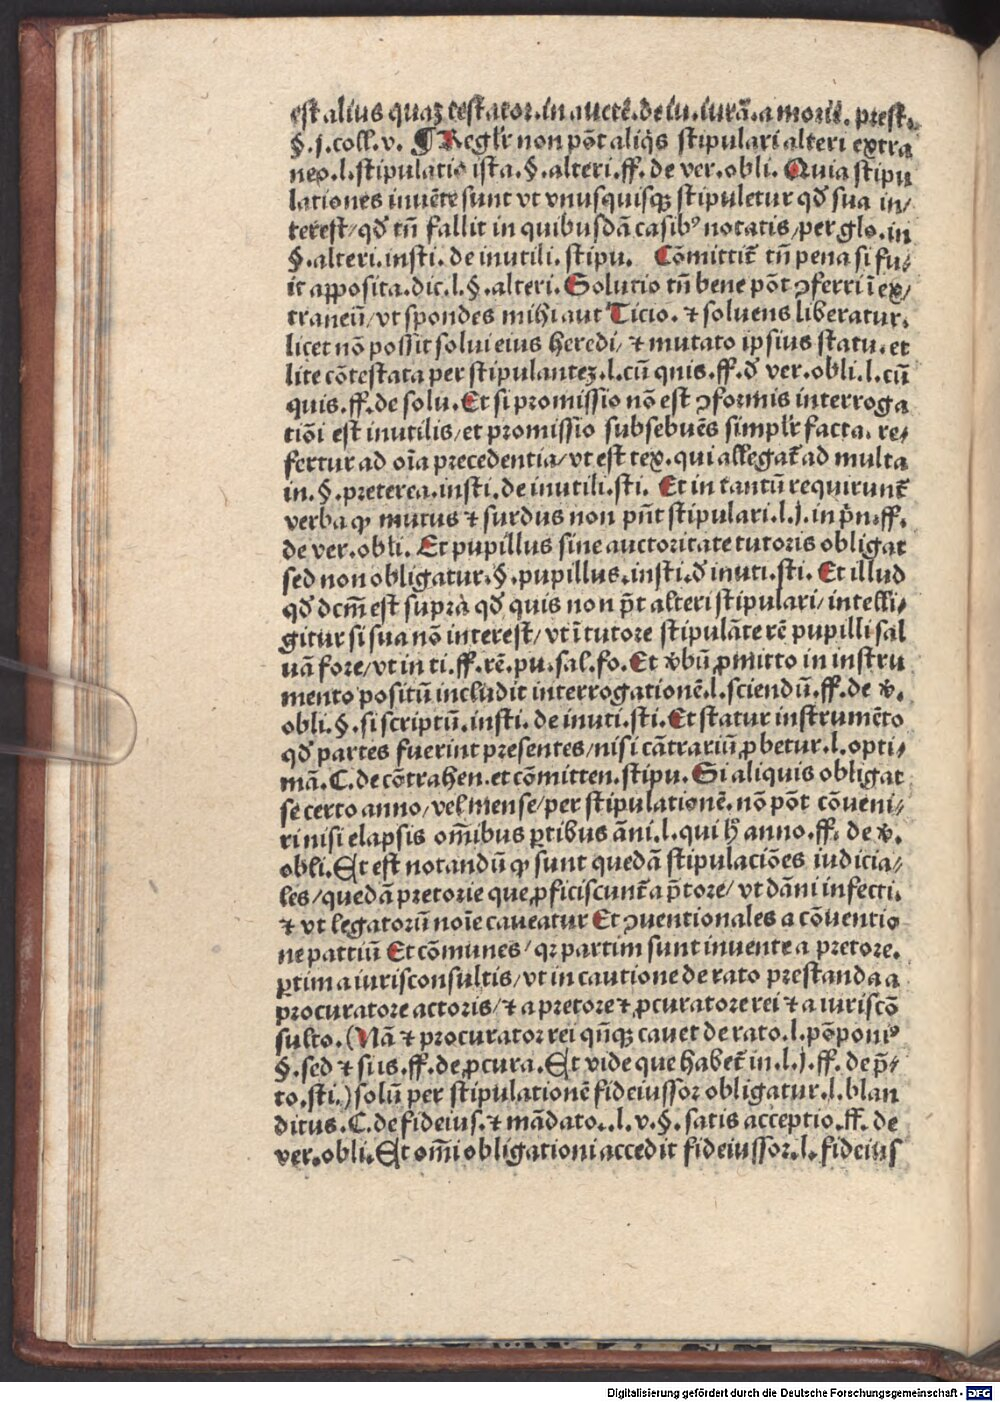 est alius quaꝫ testator.in auctẽ.de iu.iurã.a morie. prest.
§.j.coll.v. ¶ Reglr̃ non põt aliq̃s stipulari alteri extra
neo.l.stipulatio ista.§.alteri.ff.de ver.obli. Quia stipu
lationes inuẽte sunt vt vnusquisqꝫ stipuletur qđ sua in/
terest/qđ tñ fallit in quibusdã casibꝰ notatis/per glo.in
§.alteri.insti.de inutili.stipu. Cõmittit̃ tñ pena si fu/
it apposita.dic.l.§.alteri.Solutio tñ bene põt ꝯferri ĩ ex/
traneũ/vt spondes mihi aut Ticio.⁊ soluens liberatur.
licet nõ possit solui eius heredi/⁊ mutato ipsius statu.et
lite cõtestata per stipulanteꝫ.l.cũ quis.ff.đ ver.obli.l.cũ
quis.ff.de solu.Et si promissio nõ est ꝯformis interroga
tiõi est inutilis/et promissio subsebuẽs simplr̃ facta.re/
fertur ad oĩa precedentia/vt est tex.qui allegat̃ ad multa
in.§.preterea.insti.de inutili.sti. Et in tantũ requirunt̃
verba ꝙ mutus ⁊ surdus non pñt stipulari.l.j.in pñ.ff.
de ver.obli. Et pupillus sine auctoritate tutoris obligat
sed non obligatur.§.pupillus.insti.đ inuti.sti. Et illud
qđ dcm̃ est supra qđ quis non põt alteri stipulari/intelli/
gitur si sua nõ interest/vt ĩ tutore stipulãte rẽ pupilli sal
uã fore/vt in ti.ff.rẽ.pu.sal.fo.Et ṽbũ ꝓmitto in instru
mento positũ includit interrogationẽ.l.sciendũ.ff.de ṽ.
obli.§.si scriptũ.insti.de inuti.sti.Et statur instrumẽto
qđ partes fuerint presentes/nisi cãtrariũ ꝓbetur.l.opti/
mã.C.de cõtrahen.et cõmitten.stipu.Si aliquis obligat
se certo anno/vel mense/per stipulationẽ.nõ põt cõueni/
ri nisi elapsis om̃ibus ꝑtibus ãni.l.qui h̃ anno.ff.de ṽ.
obli.Et est notandũ ꝙ sunt quedã stipulaciões iudicia/
les/quedã pretorie que ꝓficiscunt̃ a p̃tore/vt dãni infecti.
⁊ vt legatorũ noĩe caueatur Et ꝯuentionales a cõuentio
ne pattiũ Et cõmunes/qꝛ partim sunt inuente a pretore.
ꝑtim a iurisconsultis/vt in cautione de rato prestanda a
procuratore actoris/⁊ a pretore ⁊ ꝓcuratore rei ⁊ a iuriscõ
sulto.(Nã ⁊ procurator rei qñqꝫ cauet de rato.l.põponiꝰ
§.sed ⁊ si is.ff.de ꝓcura.Et vide que habet̃ in.l.j.ff.de p̃/
to.sti.)solũ per stipulationẽ fideiussor obligatur.l.blan
ditus.C.de fideius.⁊ mãdato..l.v.§.satis acceptio.ff.de
ver.obli.Et om̃i obligationi accedit fideiussor.l.fideius
Digitalisierung gefördert durch die Deutsche Forschungsgemeinschaft - DFG